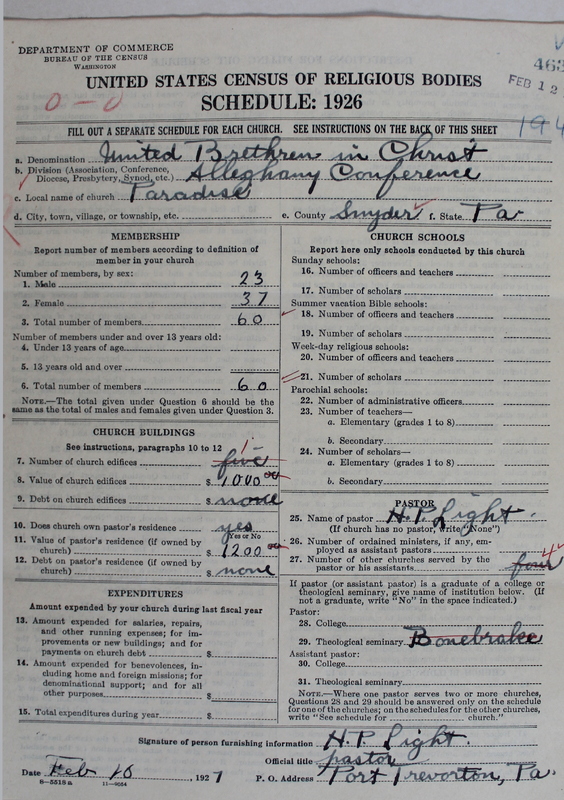 DEPARTMENT OF COMMERCE
BUREAU OF THE CENSUS
WASHINGTON
463
FEB 12
UNITED STATES CENSUS OF RELIGIOUS BODIES
0 – 0
SCHEDULE: 1926
194
FILL OUT A SEPARATE SCHEDULE FOR EACH CHURCH. SEE INSTRUCTIONS ON THE BACK OF THIS SHEET
a. Denomination United Brethren in Christ
b. Division (Association, Conference, Diocese, Presbytery, Synod, etc.) Alleghany Conference
c. Local name of church Paradise
d. City, town, village, or township, etc. e. County Snyder f. State Pa
MEMBERSHIP
Report number of members according to definition of
member in your church
Number of members, by sex:
1. Male 23
2. Female 37
3. Total number of members 60
Number of members under and over 13 years old:
4. Under 13 years of age
5. 13 years old and over
6. Total number of members 60
NOTE.—The total given under Question 6 should be the
same as the total of males and females given under Question 3.
CHURCH BUILDINGS
See instructions, paragraphs 10 to 12
7. Number of church edifices five 1
8. Value of church edifices $ 1000 00
9. Debt on church edifices $ none
10. Does church own pastor's residence yes
(Yes or No)
11. Value of pastor's residence (if owned by
church) $ 1200 00
12. Debt on pastor's residence (if owned by
church) $ none
EXPENDITURES
Amount expended by your church during last fiscal year
13. Amount expended for salaries, repairs,
and other running expenses; for im-
provements or new buildings; and for
payments on church debt $
14. Amount expended for benevolences, in-
cluding home and foreign missions; for
denominational support; and for all
other purposes $
15. Total expenditures during year $
CHURCH SCHOOLS
Report here only schools conducted by this church
Sunday schools:
16. Number of officers and teachers
17. Number of scholars
Summer vacation Bible schools:
18. Number of officers and teachers
19. Number of scholars
Week-day religious schools:
20. Number of officers and teachers
21. Number of scholars
Parochial schools:
22. Number of administrative officers
23. Number of teachers—
a. Elementary (grades 1 to 8)
b. Secondary
24. Number of scholars—
a. Elementary (grades 1 to 8)
b. Secondary
PASTOR
25. Name of pastor H. P. Light
(If church has no pastor, write "None")
26. Number of ordained ministers, if any, em-
ployed as assistant pastors
27. Number of other churches served by the
pastor or his assistants four 4
If pastor (or assistant pastor) is a graduate of a college or
theological seminary, give name of institution below. (If
not a graduate, write "No" in the space indicated.)
Pastor:
28. College
29. Theological seminary Bonebrake
Assistant pastor:
30. College
31. Theological seminary
NOTE.—Where one pastor serves two or more churches,
Questions 28 and 29 should be answered only on the schedule
for one of the churches; on the schedules for the other churches,
write "See schedule for church."
Signature of person furnishing information H. P. Light
Official title pastor
Date Feb 10, 1927 P. O. Address Port Trevorton, Pa.
8—5518a 11—9064